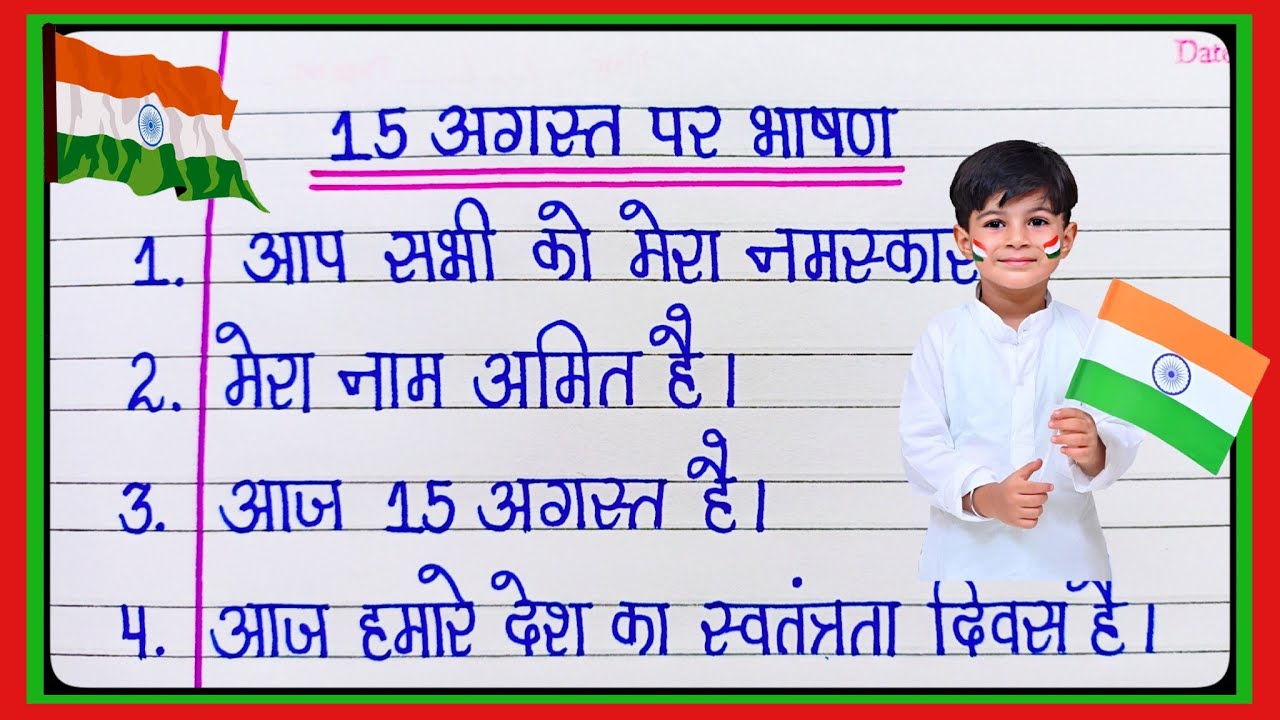 Date
15 अगस्त पर भाषण
1. आप सभी को मेरा नमस्कार
2. मेरा नाम अमित है।
3. आज 15 अगस्त है।
4. आज हमारे देश का स्वतंत्रता दिवस है।